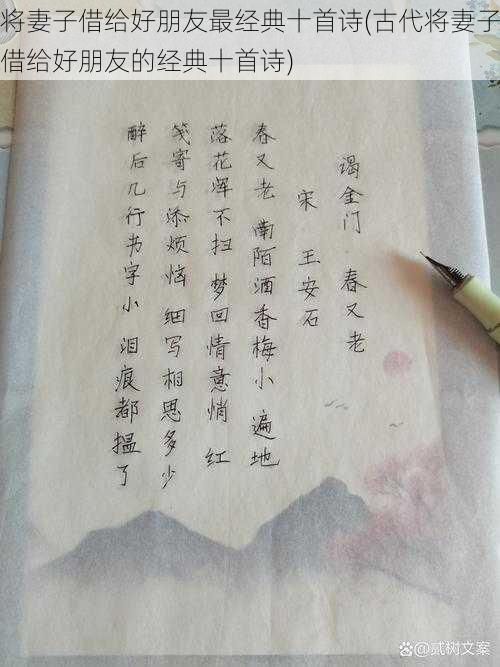 将妻子借给好朋友最经典十首诗(古代将妻子
借给好朋友的经典十首诗)
谒金门 春又老
宋 王安石
春又老 南陌酒香梅小 遍地
落花浑不扫 梦回情意悄 红
笺寄与添烦恼 细写相思多少
醉后几行书字小 泪痕都揾了
@贰树文案